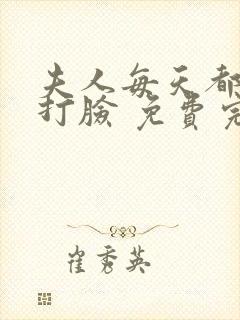 夫人每天都
打臉 免費完
崔秀英